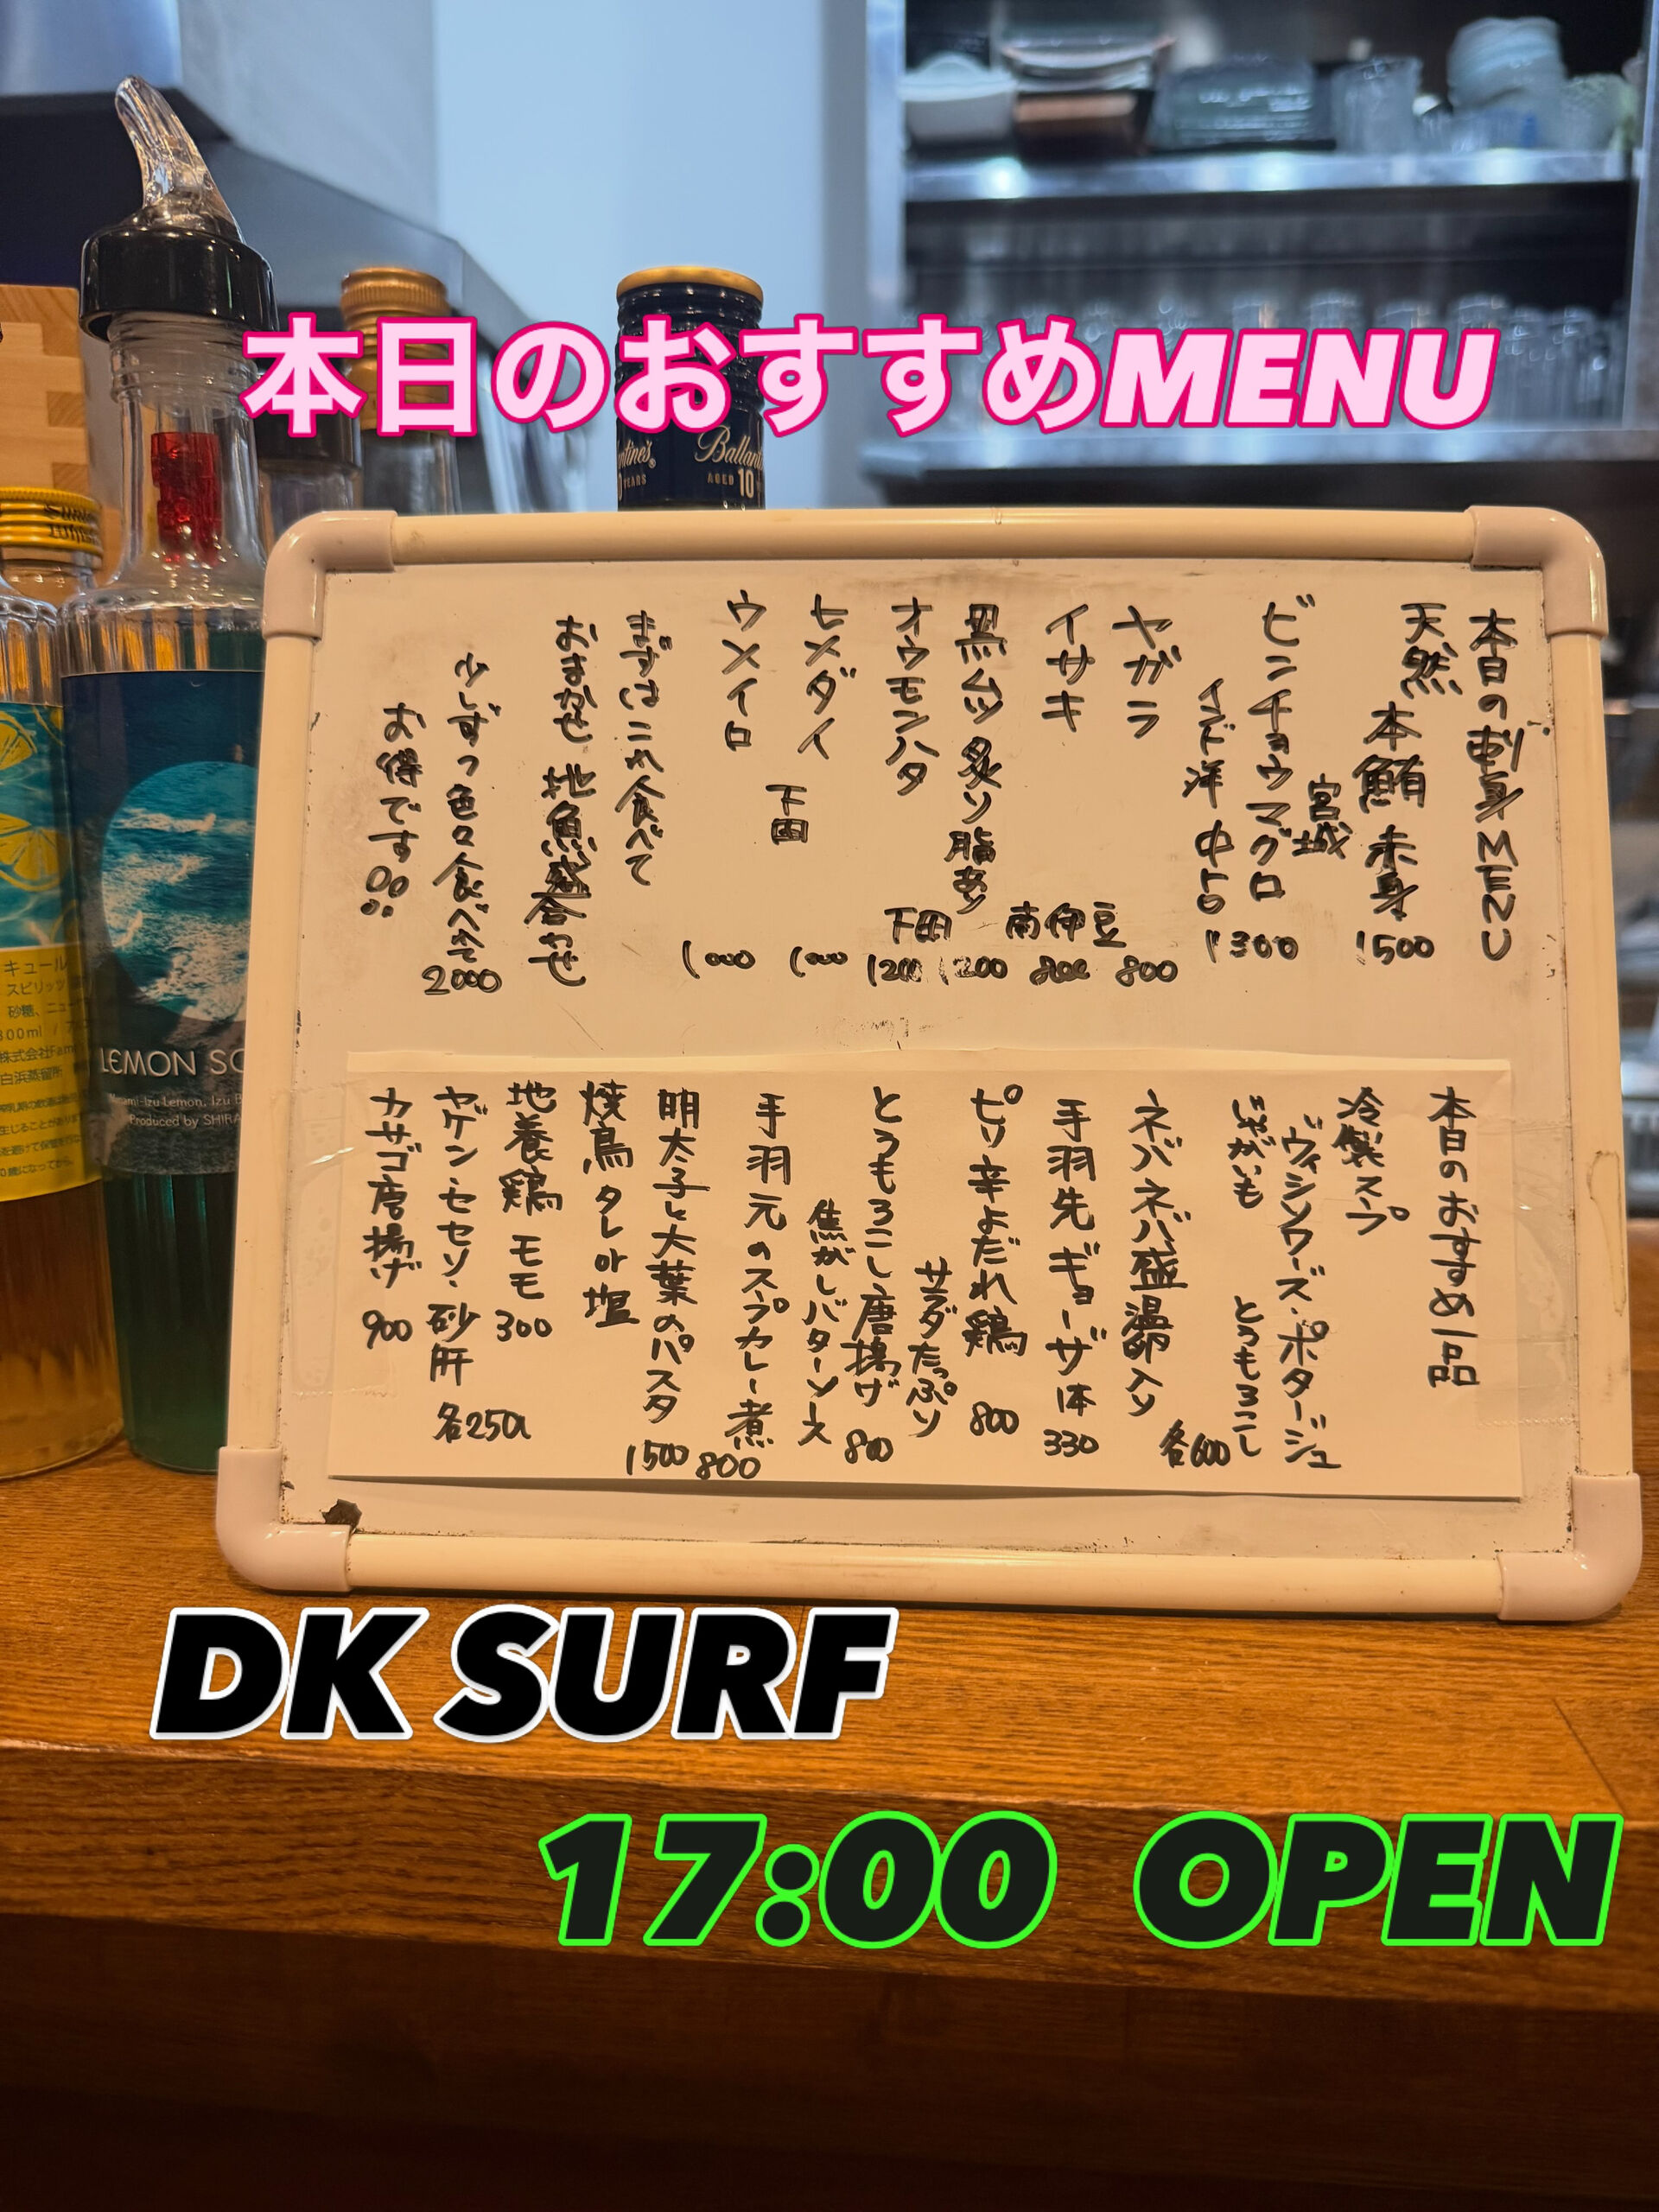 本日のおすすめMENU
Ballantine's
AGED 10
本日の刺身MENU
天然 本鮪 赤身 1500
宮城
ビンチョウマグロ 1300
インド洋 中トロ
ヤガラ 800
イサキ 800
南伊豆
黒ムツ 炙り 脂あり 1200
オウモンハタ 1200
下田
ヒメダイ 1000
下田
ウメイロ 1000
まずはこれ食べて
おまかせ 地魚盛合わせ
少しずつ色々食べれて 2000
お得です
本日のおすすめ一品
冷製スープ
ヴィシソワーズ・ポタージュ
じゃがいも とうもろこし
各600
ネバネバ盛 温卵入り
手羽先ギョーザ 1本 330
ピリ辛よだれ鶏 800
サラダたっぷり
とうもろこし唐揚げ 800
焦がしバターソース
手羽元のスープカレー煮 800
明太子と大葉のパスタ 1500
焼鳥 タレor塩
地養鶏 モモ 300
ヤゲン・セセリ・砂肝 各250
カサゴ唐揚げ 900
キュール
スピリッツ
砂糖、ニュー
300ml
株式会社
白浜蒸留所
LEMON SO
Minami-Izu Lemon, Izu B
Produced by SHIRA
DK SURF
17:00 OPEN